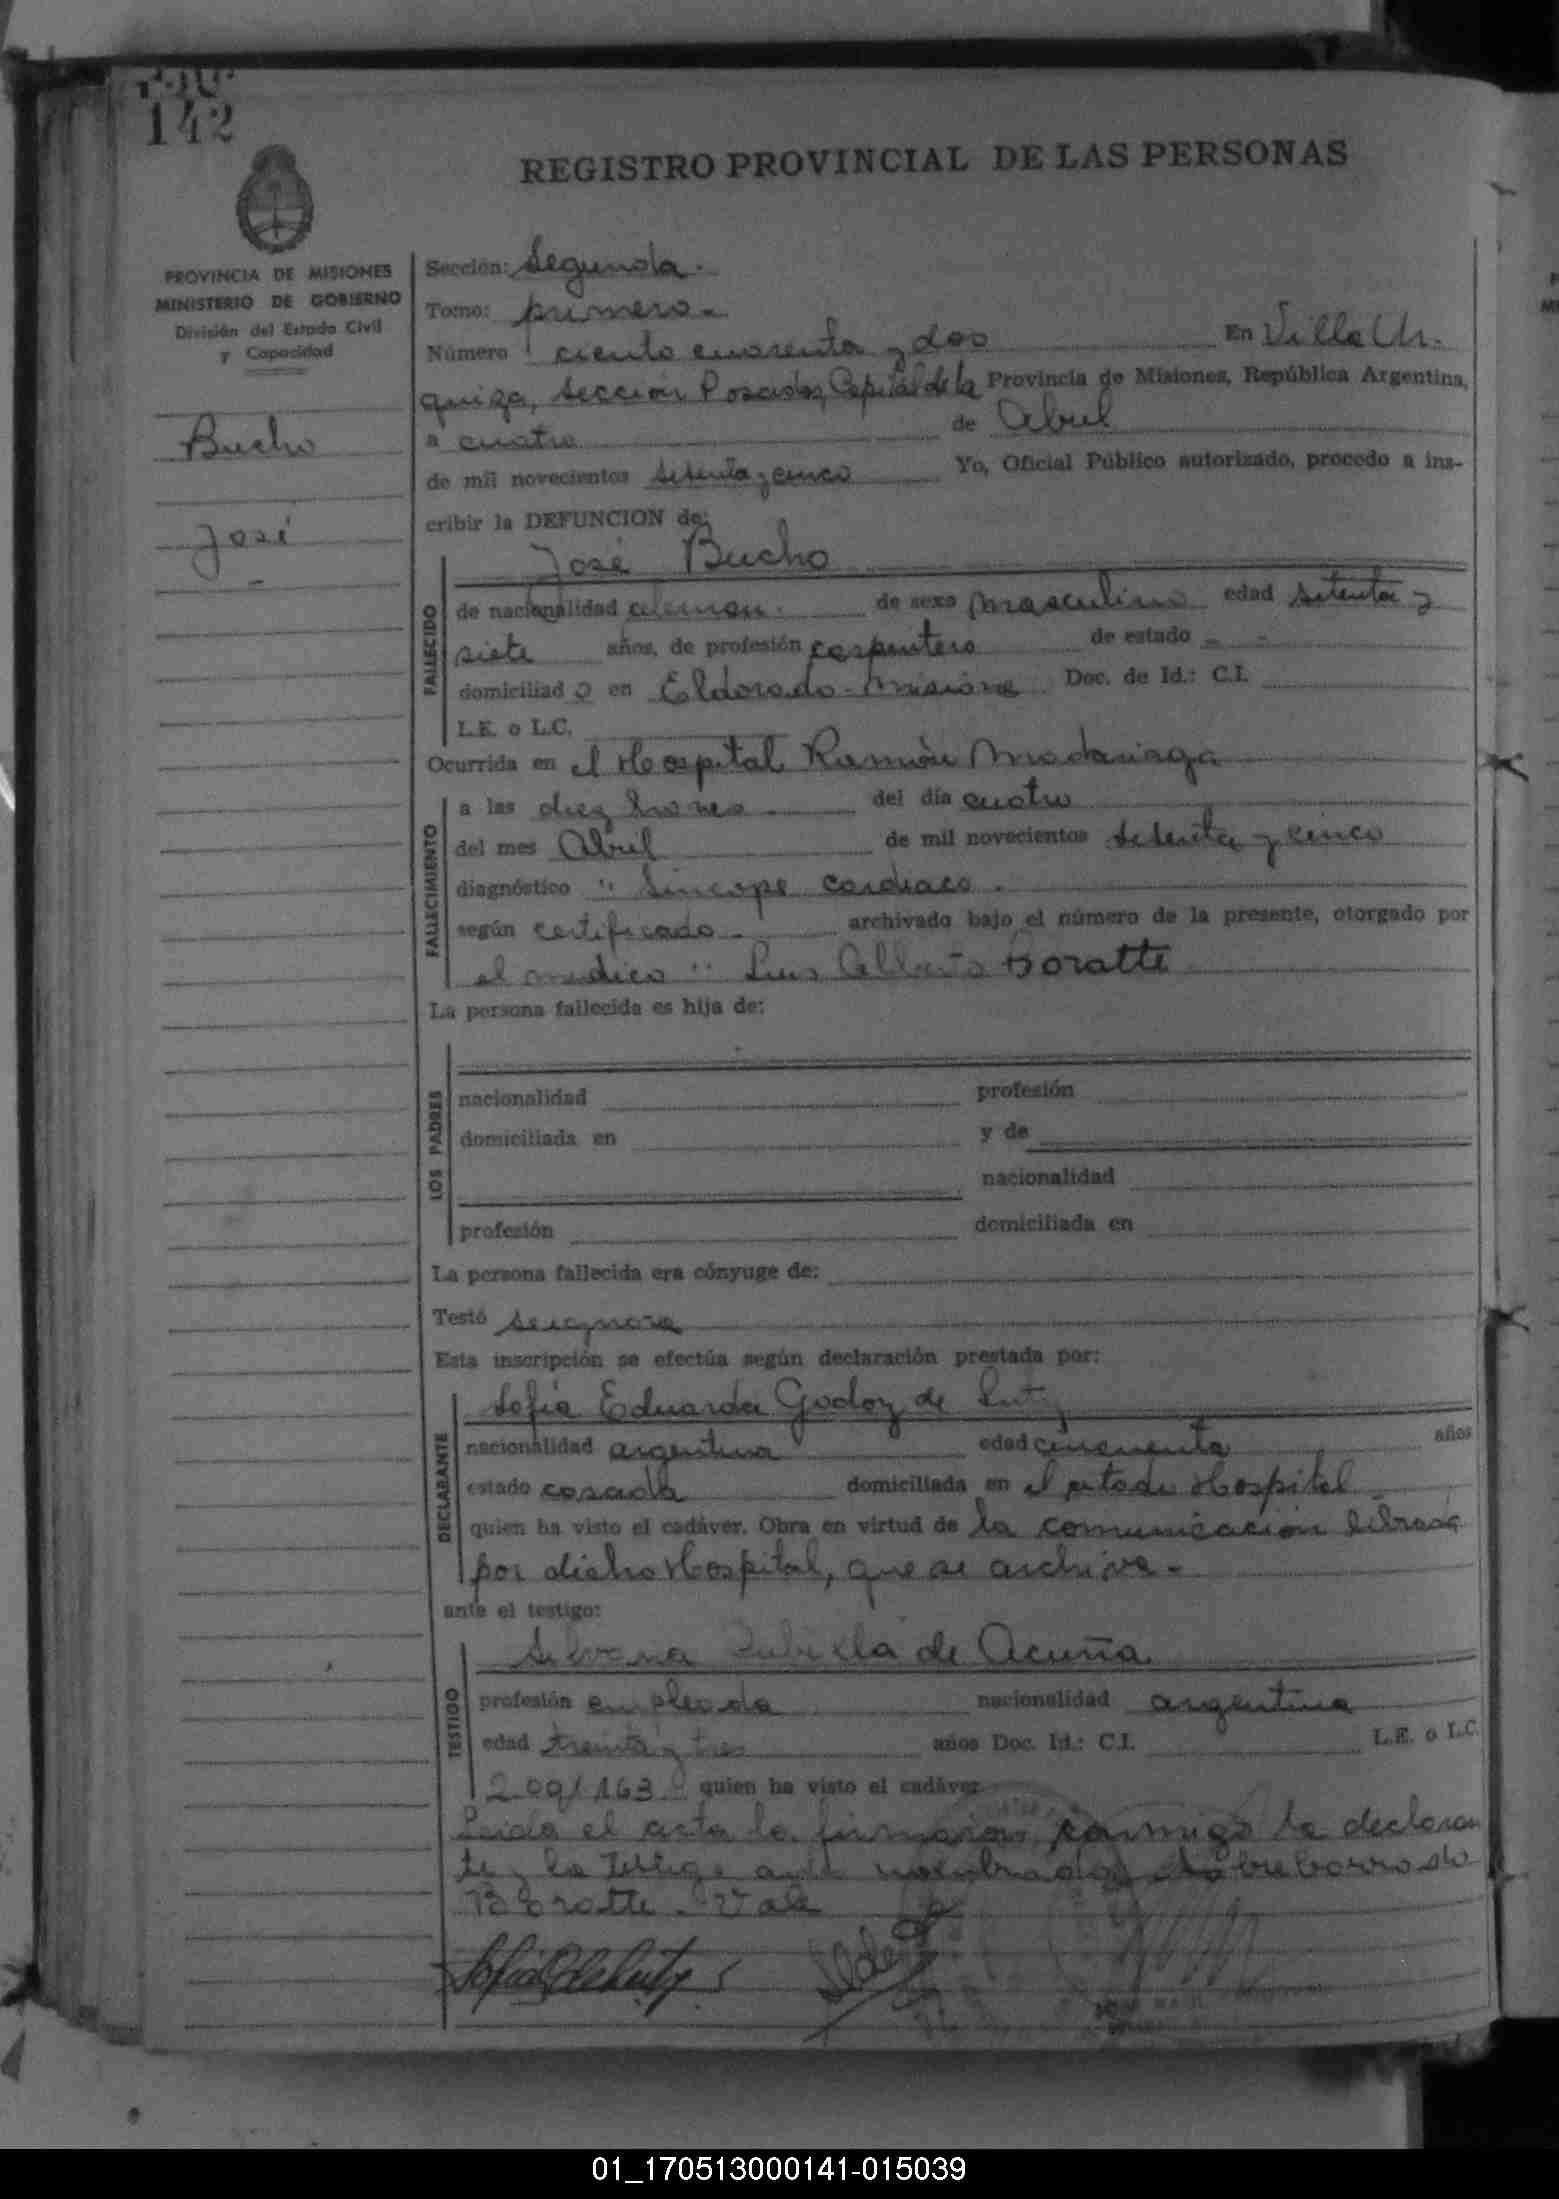 142
REGISTRO PROVINCIAL DE LAS PERSONAS
PROVINCIA DE MISIONES
MINISTERIO DE GOBIERNO
División del Estado Civil
y Capacidad
Bucho
José
Sección: Segunda.
Tomo: primero.
Número ciento cuarenta y dos En Villa Ur-
quiza, sección Posadas, Capital de la Provincia de Misiones, República Argentina,
a cuatro de Abril
de mil novecientos setenta y cinco Yo, Oficial Público autorizado, procedo a ins-
cribir la DEFUNCION de:
FALLECIDO
José Bucho
de nacionalidad aleman. de sexo masculino edad setenta y
siete años, de profesión carpintero de estado - -
domiciliado en Eldorado-Misiones Doc. de Id.: C.I.
L.E. o L.C.
Ocurrida en el Hospital Ramón Madariaga
FALLECIMIENTO
a las diez horas. del día cuatro
del mes Abril de mil novecientos setenta y cinco
diagnóstico " Sincope cardiaco.
según certificado. archivado bajo el número de la presente, otorgado por
el medico " Luis Alberto Boratte
La persona fallecida es hija de:
LOS PADRES
nacionalidad profesión
domiciliada en y de
nacionalidad
profesión domiciliada en
La persona fallecida era cónyuge de:
Testó se ignora
Esta inscripción se efectúa según declaración prestada por:
DECLARANTE
Sofia Eduarda Godoy de
nacionalidad argentina edad cincuenta años
estado casada domiciliada en el citado Hospital
quien ha visto el cadáver. Obra en virtud de la comunicación librada
por dicho Hospital, que se archiva.-
ante el testigo:
TESTIGO
Silvana de Acuña
profesión empleada nacionalidad argentina
edad treinta y tres años Doc. Id.: C.I. L.E. o L.C.
quien ha visto el cadáver.
Leida el acta la firmaron conmigo la declaran
te y la Testigo nombrada, Sobreborrado
Boratte. Vale
01_170513000141-015039